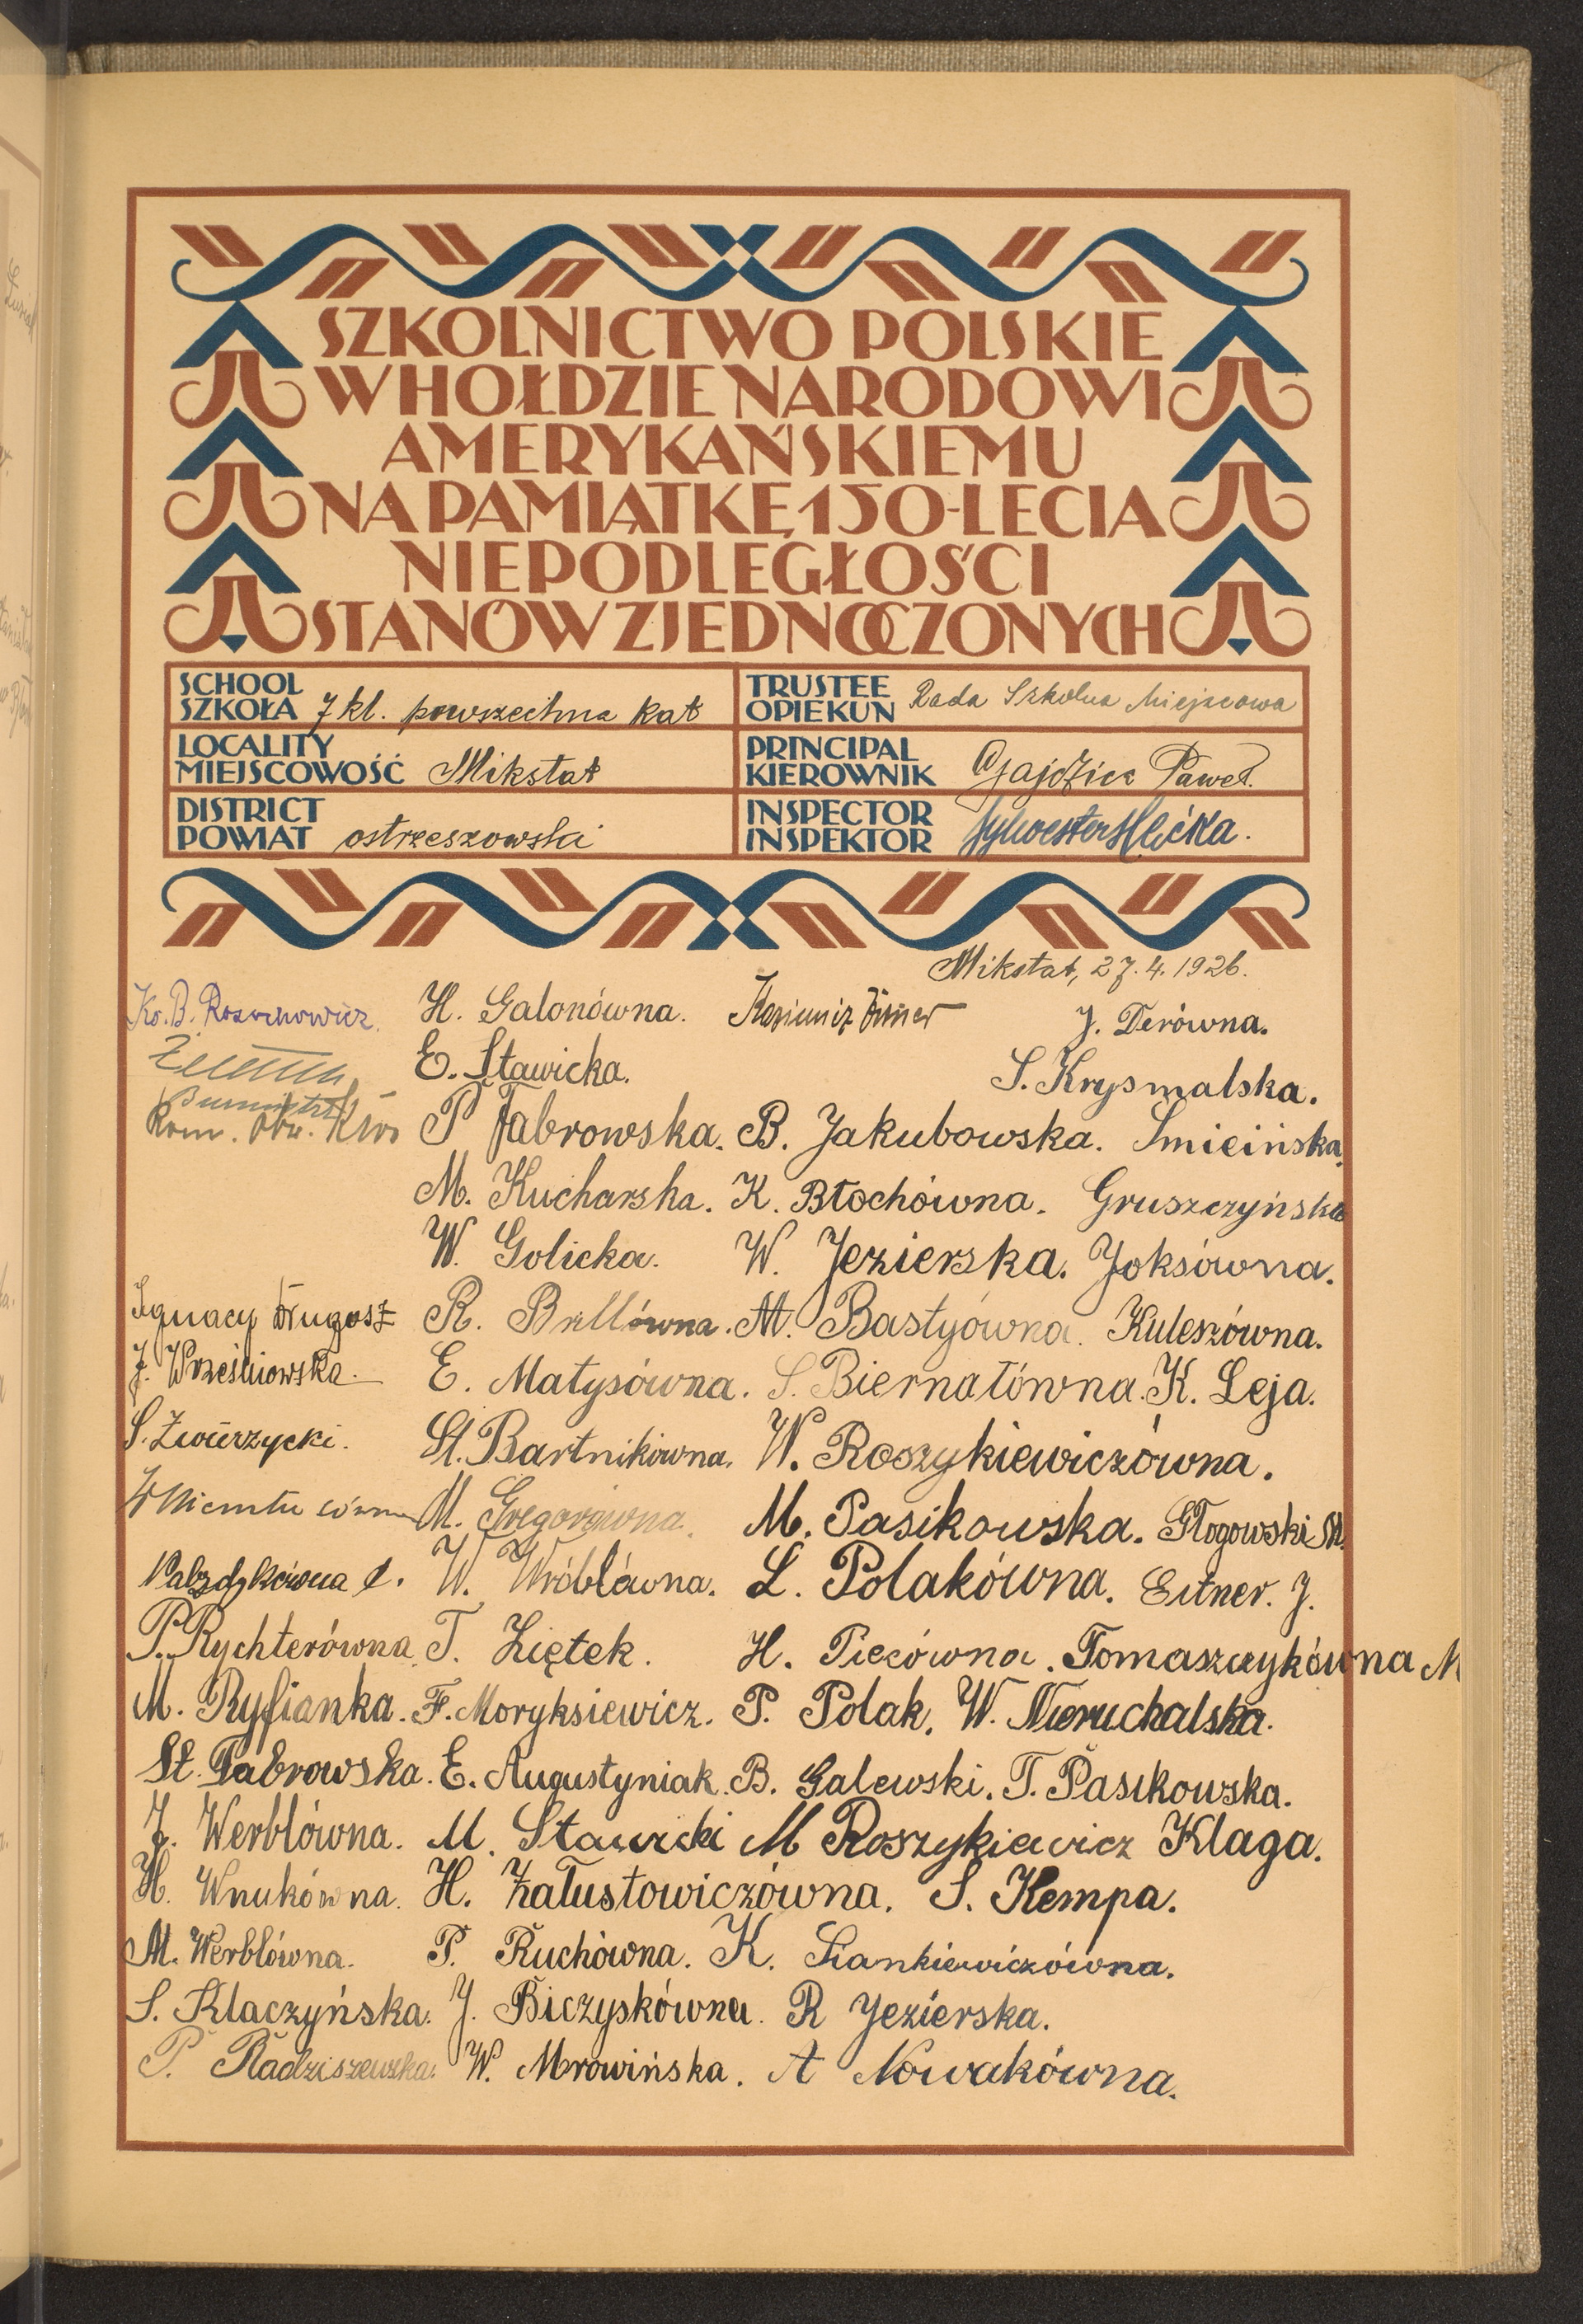 SZKOLNICTWO POLSKIE
W HOŁDZIE NARODOWI
AMERYKAŃSKIEMU
NA PAMIĄTKĘ 150-LECIA
NIEPODLEGŁOŚCI
STANÓW ZJEDNOCZONYCH
SCHOOL
SZKOŁA 7 kl. powszechna kat
TRUSTEE
OPIEKUN Rada Szkolna Miejscowa
LOCALITY
MIEJSCOWOŚĆ Mikstat
PRINCIPAL
KIEROWNIK Paweł.
DISTRICT
POWIAT ostrzeszowski
INSPECTOR
INSPEKTOR Sylwester
Mikstat, 27.4.1926.
H. Galonówna. Kazimierz J. Derówna.
E. Stawicka. S. Krysmalska.
P Fabrowska. B. Jakubowska. Śmiecińska.
M. Kucharska. K. Błochówna. Gruszczyńska
W. Golicka. W. Jezierska. Joksówna.
Ignacy Długosz R. Brllówna. M. Bastyówna. Kuleszówna.
J. Wrześniowska. E. Matysówna. S. Biernatówna. K. Leja.
S. Zwierzycki. St. Bartnikówna. W. Roszykiewiczówna.
M. Gregorówna. M. Pasikowska. Głogowski M.
W. Wróblówna. L. Polakówna. Eitner. J.
P. Rychterówna. T. Ziętek. H. Piecówna. Tomaszczykówna M
M. Ryfianka. F. Moryksiewicz. P. Polak. W. Nieruchalska.
St. Fabrowska. E. Augustyniak. B. Galewski. T. Pasikowska.
J. Werblówna. M. Stawicki M Roszykiewicz Klaga.
H. Wnukówna. H. Załustowiczówna. S. Kempa.
M. Werblówna. P. Ruchówna. K. Siankiewiczówna.
S. Klaczyńska. J. Biczyskówna. R Jezierska.
P. Radziszewska. W. Mrowińska. A Nowakówna.